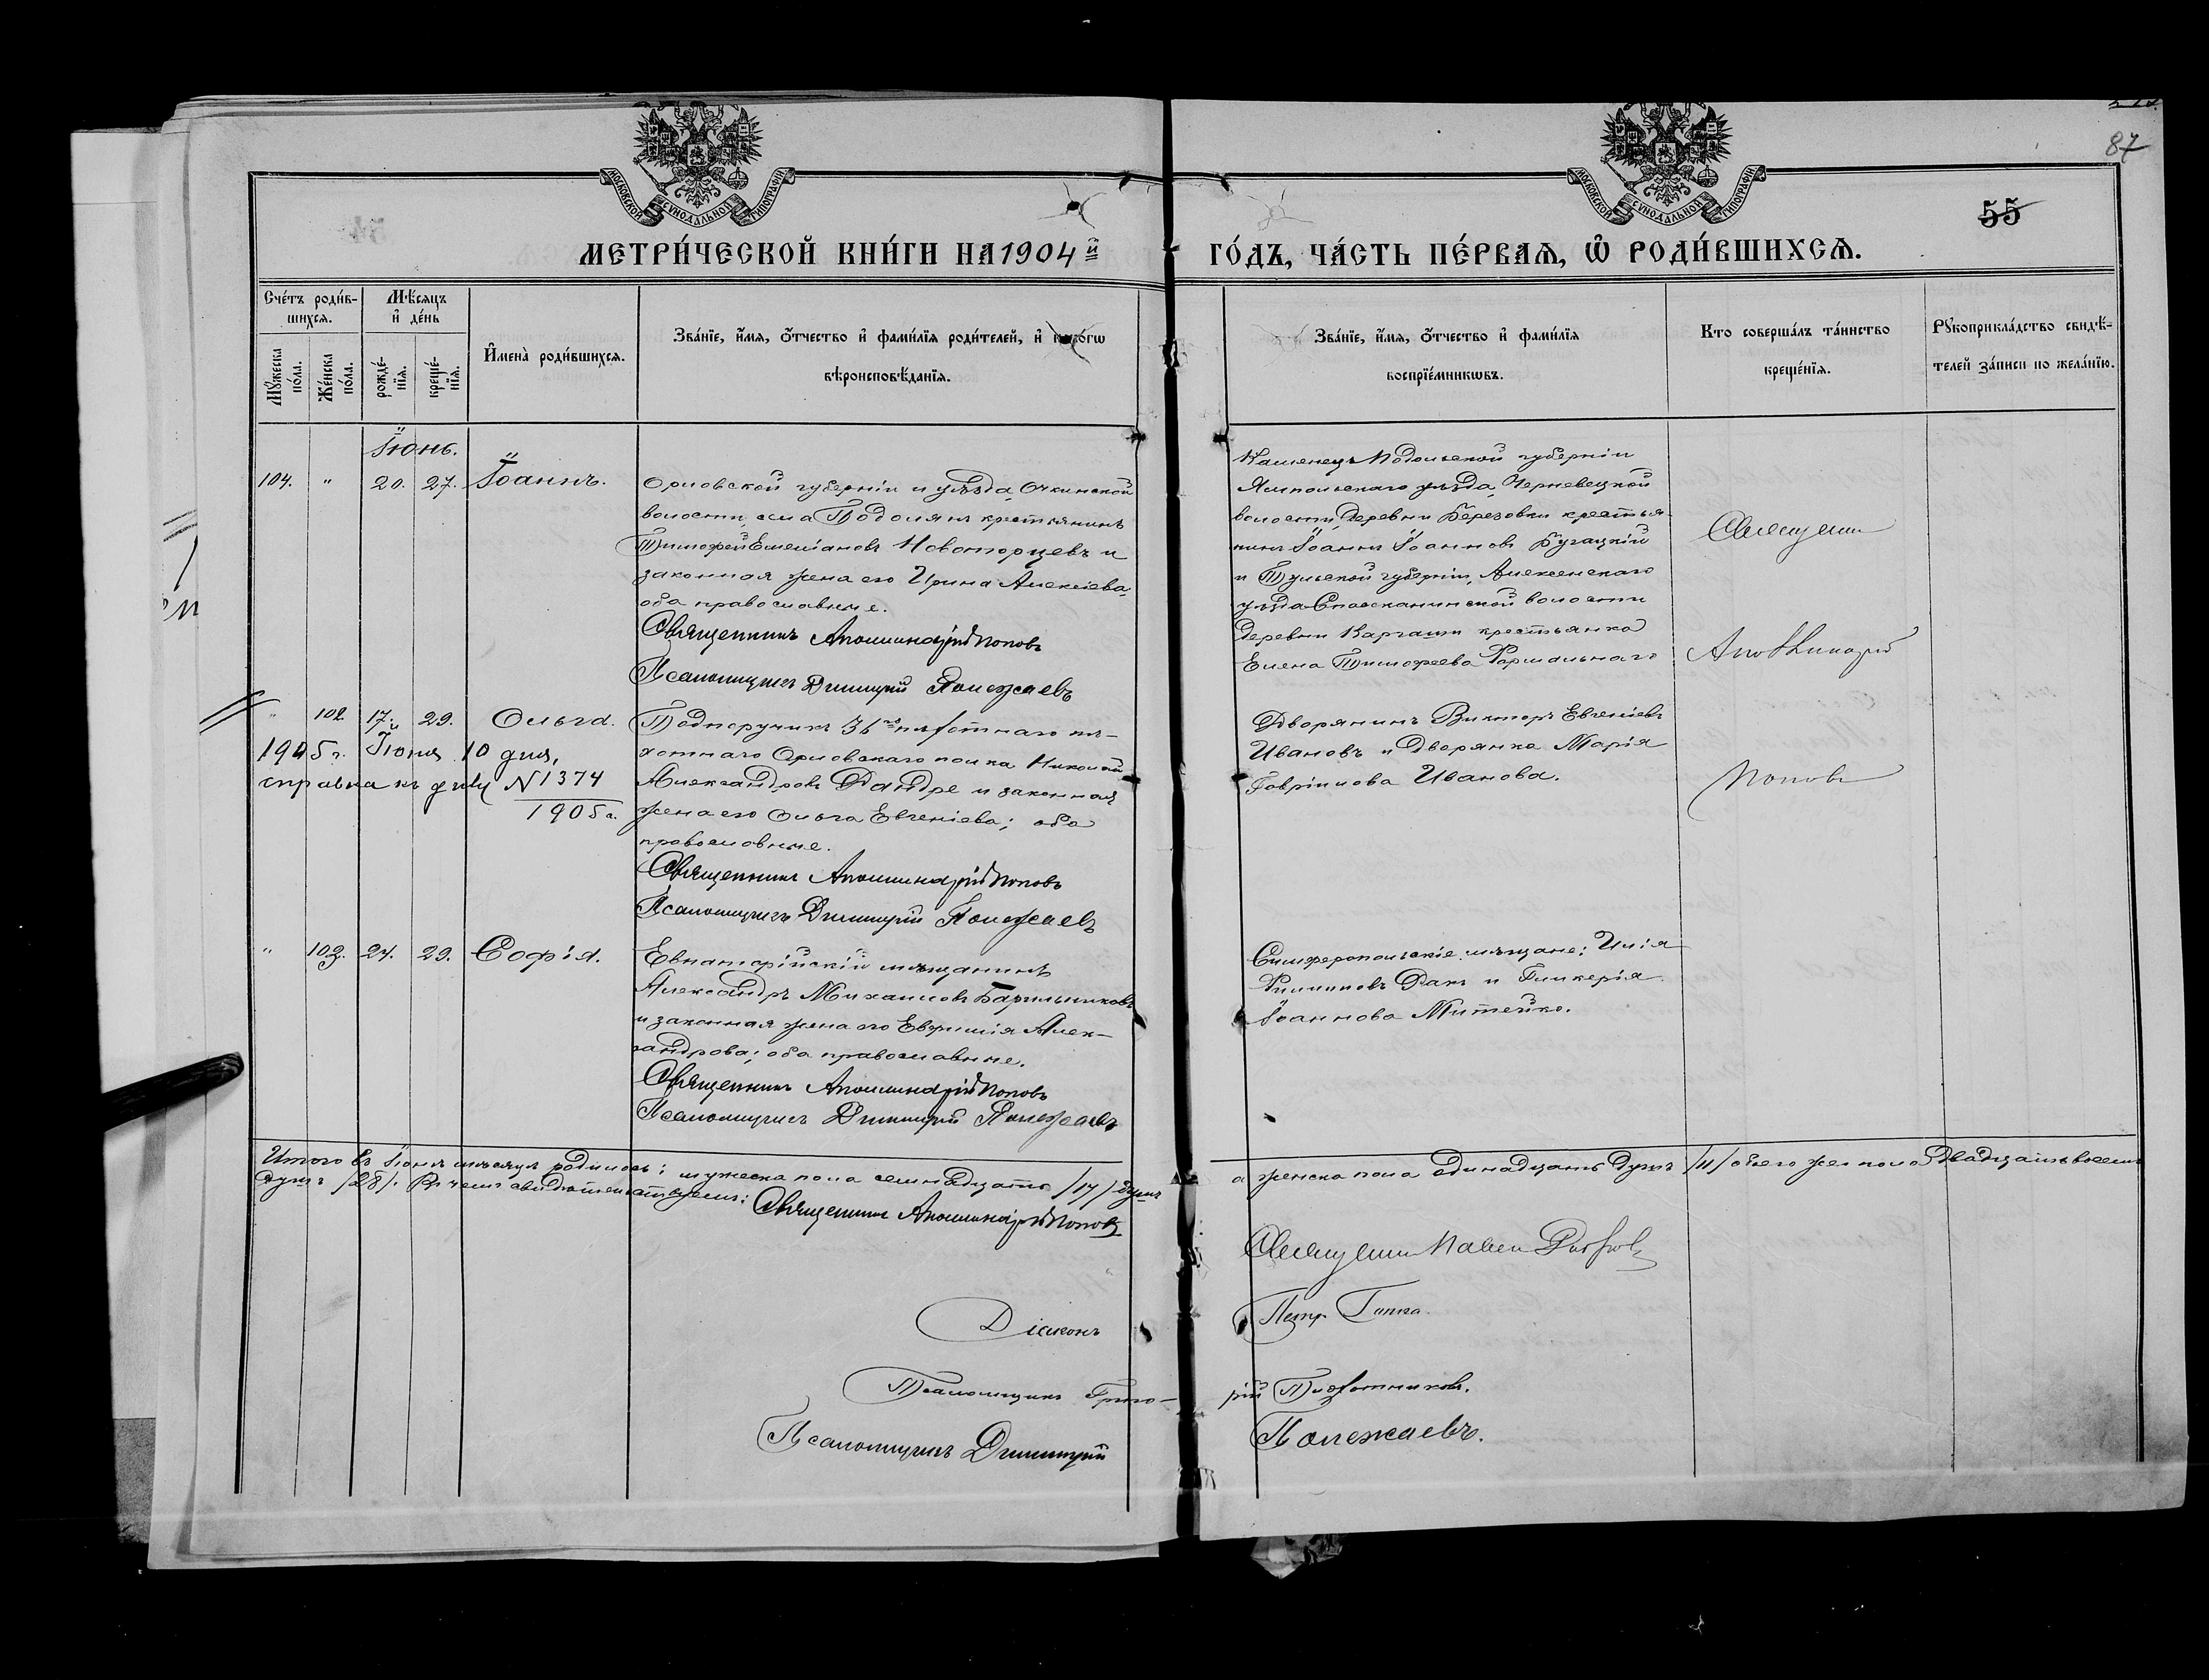 87
55
МОСКОВСКОЙ СѴНОДАЛЬНОЙ ТИПОГРАФІИ
МОСКОВСКОЙ СѴНОДАЛЬНОЙ ТИПОГРАФІИ
МЕТРИ́ЧЕСКОЙ КНИ́ГИ НА 1904й ГО́ДЪ, ЧА́СТЬ ПЕ́РВАѦ, Ѡ҆ РОДИ́ВШИХСѦ.
Сче́тъ роди́в-
шихсѧ.
Мѣ́сяцъ
и҆ де́нь
Мꙋ́жеска
по́ла.
Же́нска
по́ла.
рожде́-
нїѧ.
креще́-
нїѧ.
И҆мена̀ роди́вшихсѧ.
Зва́нїе, и҆́мѧ, ѻ҆́тчество и҆ фами́лїѧ роди́телей, и҆ како́гѡ
вѣроисповѣ́данїѧ.
Зва́нїе, и҆́мѧ, ѻ҆́тчество и҆ фами́лїѧ
воспрїе́мникѡвъ.
Кто соверша́лъ та́инство
креще́нїѧ.
Рꙋкоприкла́дство свидѣ́-
телей за́писи по жела́нїю.
Іюнь.
104. " 20. 27. Іоаннъ.
Орловской губерніи и уѣзда, Очкинской
волости, села Подолянъ крестьянинъ
Тимофей Емеліановъ Новоторцевъ и
законная жена его Ирина Алексіева,
оба православные.
Священникъ Аполлинарій Поповъ
Псаломщикъ Димитрій Полежаевъ
Каменецъ Подольской губерніи
Ямпольскаго уѣзда, Черневецкой
волости, деревни Березовки крестья-
нинъ Іоаннъ Іоанновъ Бугацкій
и Тульской губерніи, Алексенскаго
уѣзда Спасеканинской волости
деревни Каргаши крестьянка
Елена Тимофеева
Священникъ
Аполлинарій
Поповъ
" 102 17. 29. Ольга.
1905 г. Іюня 10 дня,
справка къ дѣлу N 1374
1905 г.
Подпоручикъ 36го пѣхотнаго пѣ-
хотнаго Орловскаго полка Николай
Александровъ Дандре и законная
жена его Ольга Евгеніева; оба
православные.
Священникъ Аполлинарій Поповъ
Псаломщикъ Димитрій Полежаевъ
Дворянинъ Викторъ Евгеніевъ
Ивановъ и дворянка Марія
Гавріилова Иванова.
" 103. 24. 29. Софія.
Евпаторійскій мѣщанинъ
Александръ Михаиловъ Барильниковъ
и законная жена его Евфимія Алек-
сандрова; оба православные.
Священникъ Аполлинарій Поповъ
Псаломщикъ Димитрій Полежаевъ
Симферопольскіе мѣщане: Илія
Филипповъ Дакъ и Гликерія
Іоаннова Митейко.
Итого въ Іюнѣ мѣсяцѣ родилось: мужеска пола семнадцать /17/ душъ
а женска пола одинадцать душъ /11/ обоего же пола двадцать восемь
душъ /28/. Въ чемъ свидѣтельствуемъ: Священникъ Аполлинарій Поповъ
Священникъ Павелъ
Діаконъ Петръ
Псаломщикъ Григо-
рій Плотниковъ.
Псаломщикъ Димитрій
Полежаевъ.